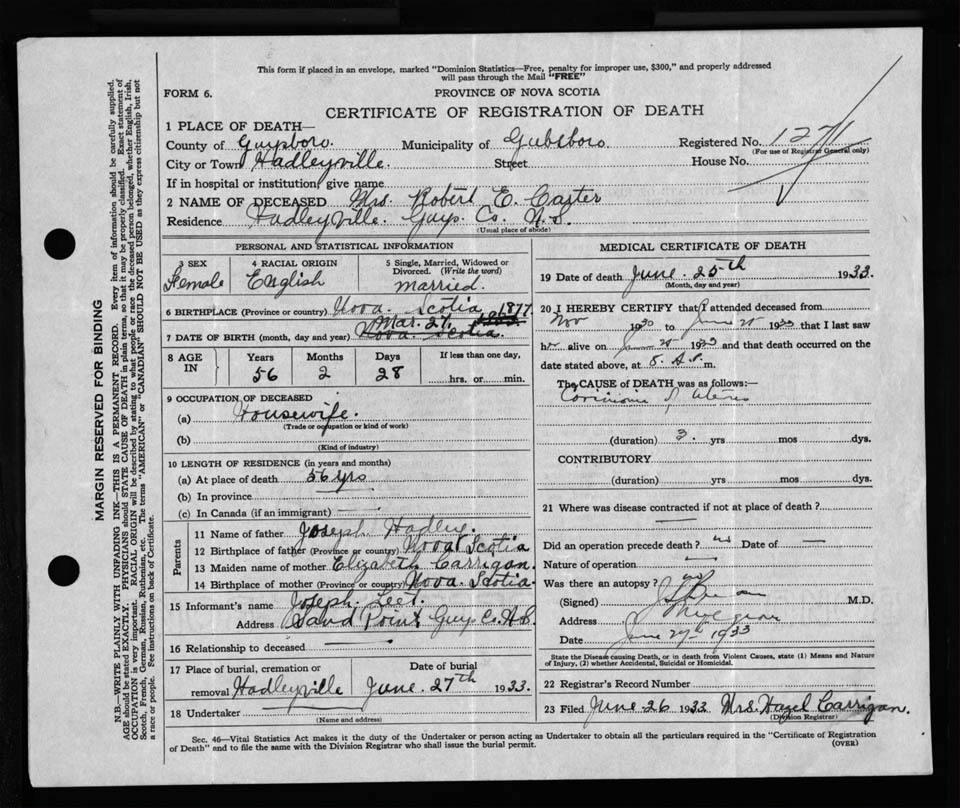 This form if placed in an envelope, marked "Dominion Statistics—Free, penalty for improper use, $300," and properly addressed
will pass through the Mail "FREE"
FORM 6.
PROVINCE OF NOVA SCOTIA
CERTIFICATE OF REGISTRATION OF DEATH
1 PLACE OF DEATH—
County of Guysboro. Municipality of Registered No. 1271
(For use of Registrar General only)
City or Town Hadleyville. Street House No.
If in hospital or institution, give name
2 NAME OF DECEASED Mrs Robert E. Carter
Residence Hadleyville. Guys. Co. N.S.
(Usual place of abode)
PERSONAL AND STATISTICAL INFORMATION
3 SEX 4 RACIAL ORIGIN 5 Single, Married, Widowed or
Divorced. (Write the word)
Female English married.
6 BIRTHPLACE (Province or country) Nova Scotia
Mar. 27, 1877
7 DATE OF BIRTH (month, day and year) Nova Scotia.
8 AGE IN Years Months Days If less than one day,
56 2 28 hrs. or min.
9 OCCUPATION OF DECEASED
(a) Housewife.
(Trade or occupation or kind of work)
(b)
(Kind of industry)
10 LENGTH OF RESIDENCE (in years and months)
(a) At place of death 56 yrs
(b) In province
(c) In Canada (if an immigrant) —
Parents
11 Name of father Joseph
12 Birthplace of father (Province or country) Nova Scotia
13 Maiden name of mother Elizabeth Carrigan.
14 Birthplace of mother (Province or country) Nova Scotia.
15 Informant's name Joseph
Address Sand Point Guys Co.
16 Relationship to deceased —
17 Place of burial, cremation or Date of burial
removal Hadleyville June 27th 1933.
18 Undertaker
(Name and address)
MEDICAL CERTIFICATE OF DEATH
19 Date of death June 25th 1933.
(Month, day and year)
20 I HEREBY CERTIFY that I attended deceased from
Nov 1930 to June 25 1933 that I last saw
her alive on 1933 and that death occurred on the
date stated above, at 8. m.
The CAUSE of DEATH was as follows:—
of Uterus
(duration) 3. yrs mos dys.
CONTRIBUTORY
(duration) yrs mos dys.
21 Where was disease contracted if not at place of death?
—
Did an operation precede death? no Date of —
Nature of operation —
Was there an autopsy? no
(Signed) M.D.
Address
Date June 1933
State the Disease causing Death, or in death from Violent Causes, state (1) Means and Nature
of Injury, (2) whether Accidental, Suicidal or Homicidal.
22 Registrar's Record Number
23 Filed June 26 1933 Mrs. Hazel Carrigan.
(Division Registrar)
Sec. 46—Vital Statistics Act makes it the duty of the Undertaker or person acting as Undertaker to obtain all the particulars required in the "Certificate of Registration
of Death" and to file the same with the Division Registrar who shall issue the burial permit. (OVER)
MARGIN RESERVED FOR BINDING
N.B.—WRITE PLAINLY WITH UNFADING INK—THIS IS A PERMANENT RECORD. Every item of information should be carefully supplied.
AGE should be stated EXACTLY. PHYSICIANS should STATE CAUSE OF DEATH in plain terms, so that it may be properly classified. Exact statement of
OCCUPATION is very important. RACIAL ORIGIN will be described by stating to what people or race the deceased person belonged, whether English, Irish,
Scotch, French, German, Russian, Ruthenian, etc. The terms "AMERICAN" or "CANADIAN" SHOULD NOT BE USED as they express citizenship but not
a race or people. See instructions on back of Certificate.